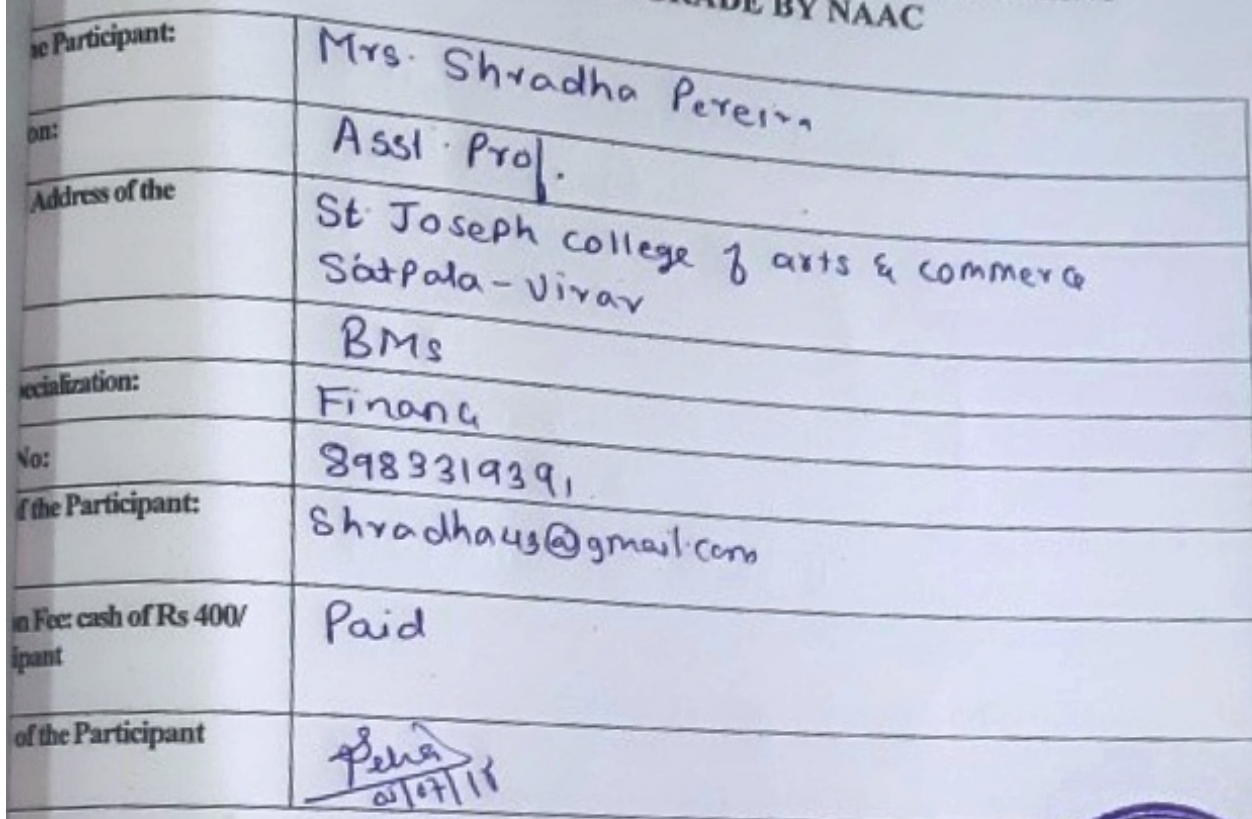 GRADE BY NAAC
he Participant: Mrs. Shradha Pereira
on: Asst. Prof.
Address of the St. Joseph college of arts & commerce
Satpala - Virar
BMS
ecialization: Finance
No: 8983319391
f the Participant: Shradha43@gmail.com
n Fee: cash of Rs 400/ Paid
ipant
of the Participant